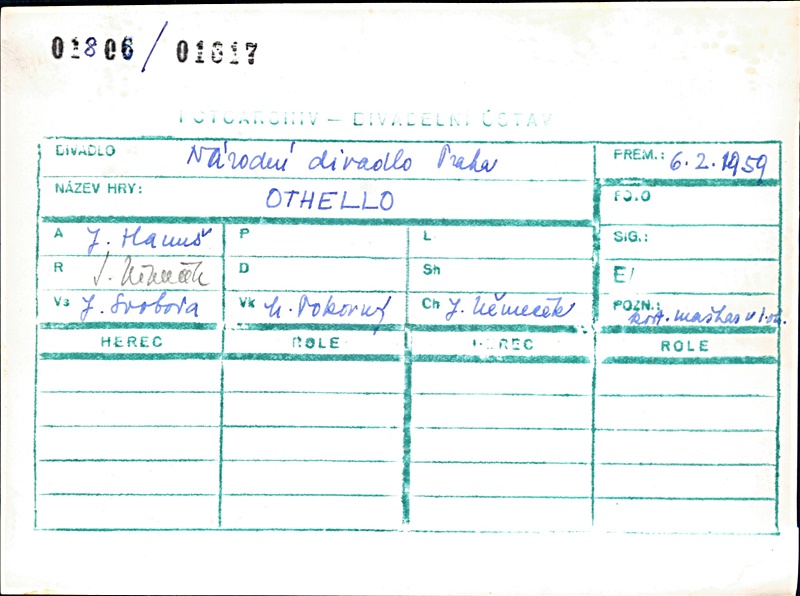 01806/01617
FOTOARCHIV – DIVADELNÍ ÚSTAV
DIVADLO Národní divadlo Praha PREM.: 6.2.1959
NÁZEV HRY: OTHELLO FOTO
A J. Hanuš P L SIG.:
R J. Němeček D Sh E/
Vs J. Svoboda Vk L. Pokorný Ch J. Němeček POZN.:
HEREC ROLE HEREC ROLE